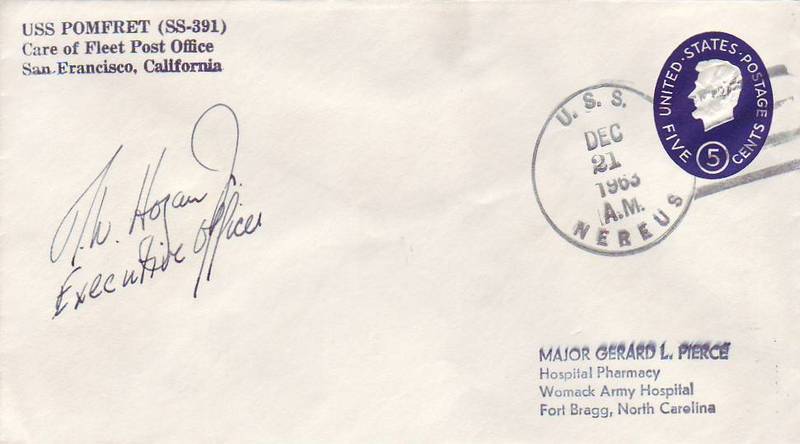 USS POMFRET (SS-391)
Care of Fleet Post Office
San Francisco, California
UNITED·STATES·POSTAGE
FIVE 5 CENTS
U.S.S.
DEC
21
1963
A.M.
NEREUS
T.W. Hogan Jr.
Executive Officer
MAJOR GERARD L. PIERCE
Hospital Pharmacy
Womack Army Hospital
Fort Bragg, North Carolina